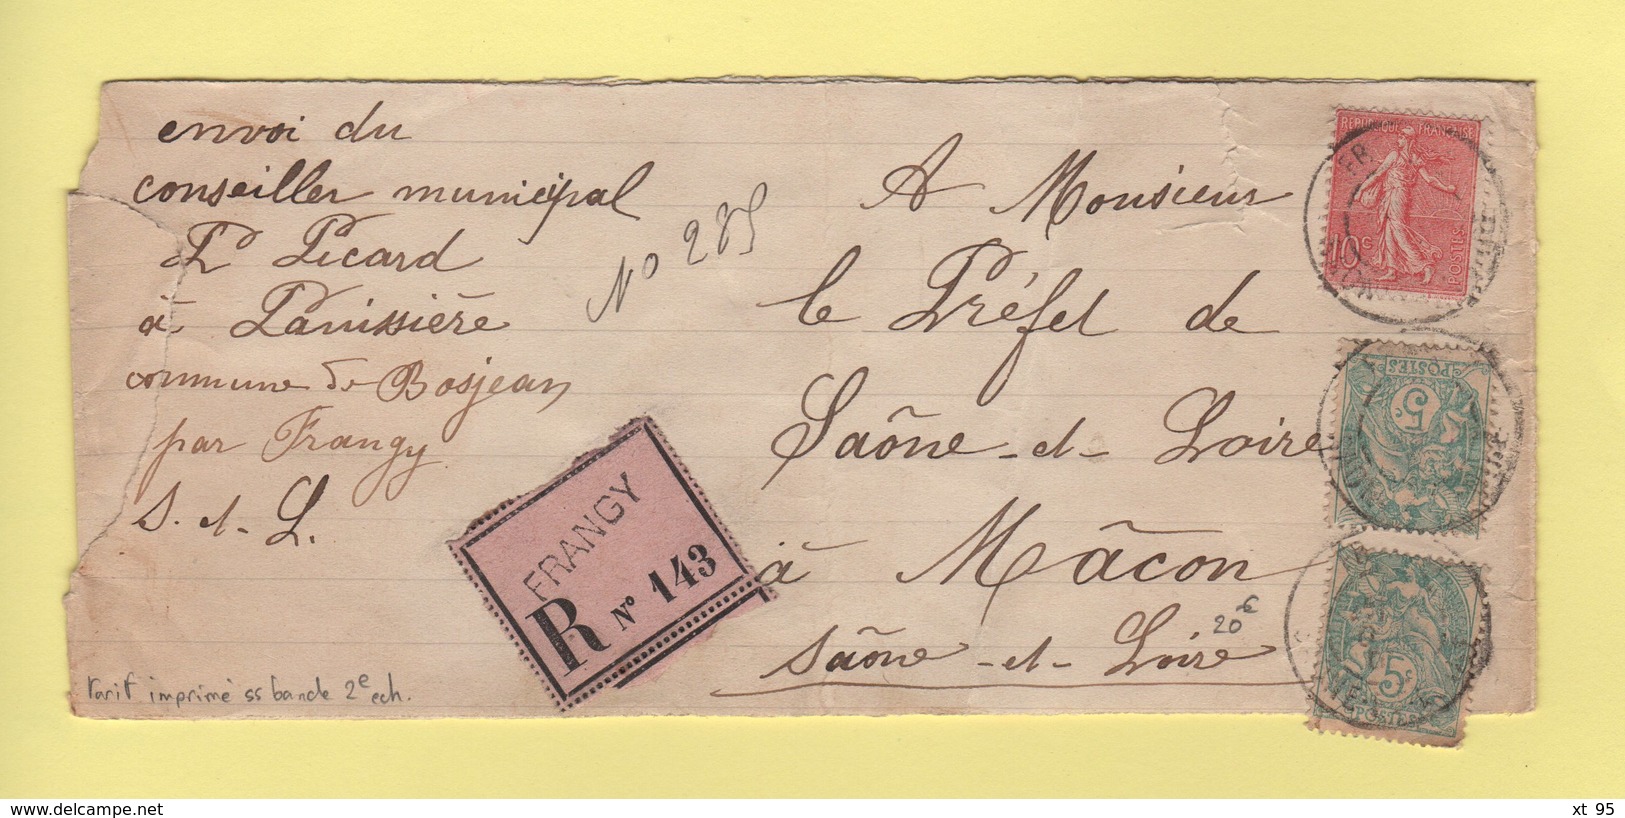 envoi du
conseiller municipal
P Picard
à Panissière
commune de Bosjean
par Frangy
S. et L.
No 285
A Monsieur
le Préfet de
Saône-et-Loire
à Mâcon
Saône-et-Loire
20€
FRANGY
R No 143
REPUBLIQUE FRANÇAISE
10c
POSTES
POSTES
5c
5c
POSTES
tarif imprimé ss bande 2e ech.
www.delcampe.net
xt 95